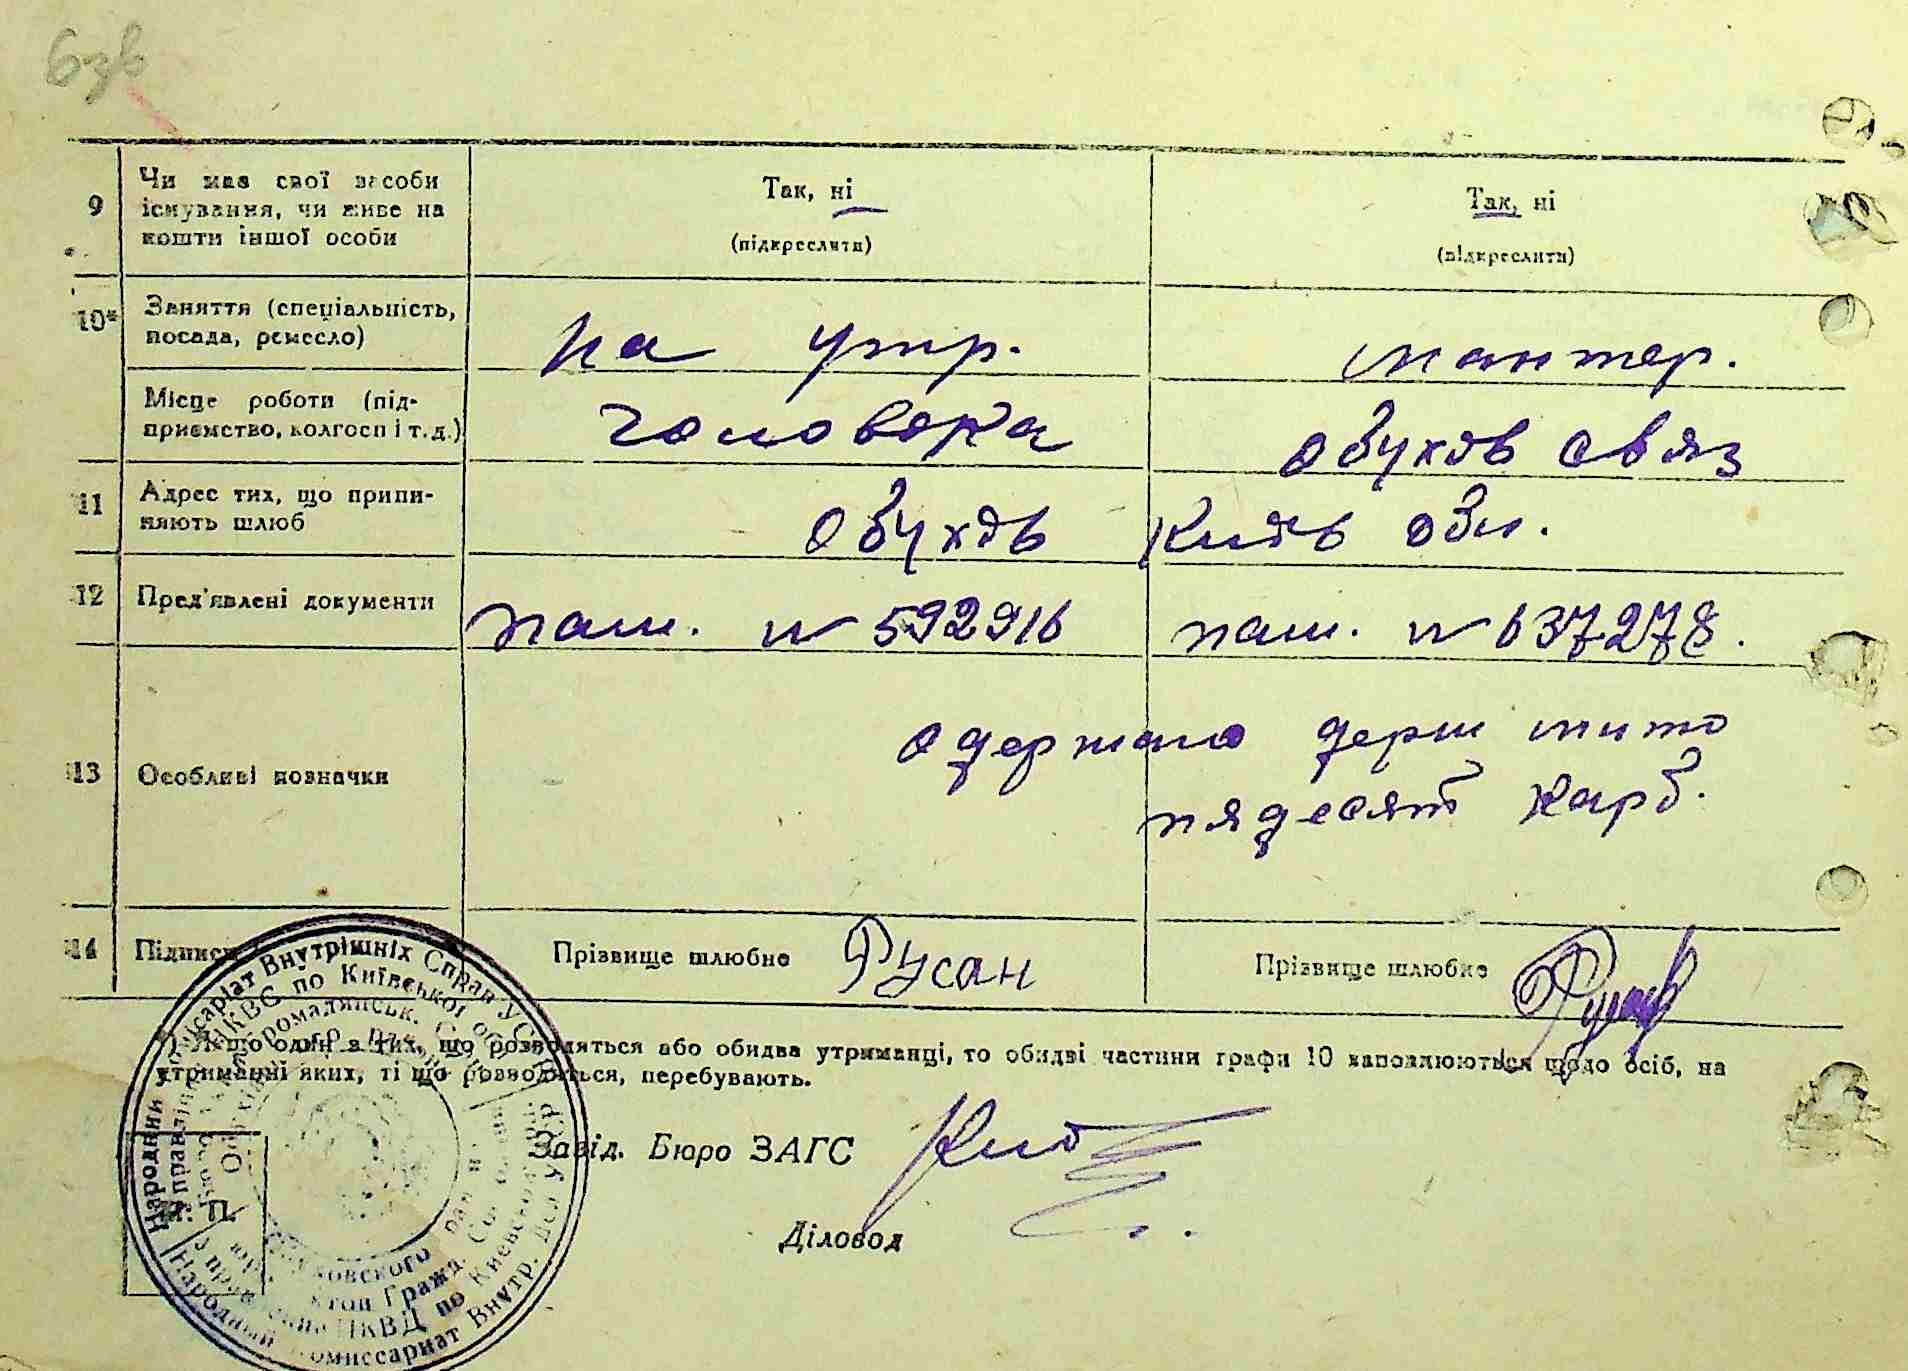 9
Чи має свої засоби
існування, чи живе на
кошти іншої особи
Так, ні
(підкреслити)
Так, ні
(підкреслити)
10*
Заняття (спеціальність,
посада, ремесло)
на утр.
мантер.
Місце роботи (під-
приємство, колгосп і т. д.)
чоловека
Обухов связ
11
Адрес тих, що припи-
няють шлюб
Обухов Київ обл.
12
Пред'явлені документи
пасп. № 592916
пасп. № 637278.
13
Особливі позначки
Одержано держ мито
пядесят карб.
14
Підписи
Прізвище шлюбне Русан
Прізвище шлюбне
*) Якщо один з тих, що розводяться або обидва утриманці, то обидві частини графи 10 заповлюються щодо осіб, на
утриманні яких, ті що розводяться, перебувають.
Завід. Бюро ЗАГС
Діловод
М. П.
Народний Комісаріат Внутрішніх Справ УСРР
Управління НКВС по Київській обл.
Народный Комиссариат Внутр. Дел УССР